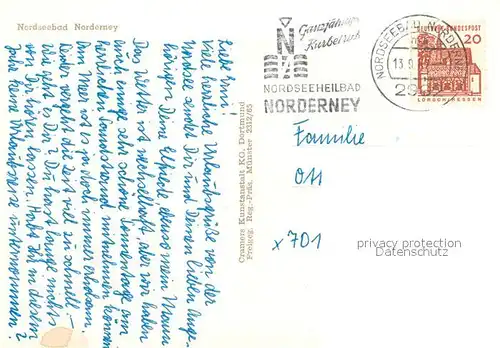 Nordseebad Norderney
Lieber Erni!
Viele herzliche Urlaubsgrüße von der
Nordsee sendet Dir und Deinen lieben Ange-
hörigen Deine Elfriede
Das Wetter ist wechselhaft, aber wir haben
auch einige sehr schöne Sonnentage am
herrlichen Sandstrand mitnehmen können.
Am Meer ist es noch immer erholsam.
Leider vergeht die Zeit viel zu schnell.
Wie geht es Dir? Du hast lange nichts
von Dir hören lassen. Habt Ihr in diesem
Jahr keine Urlaubsreise unternommen?
Cramers Kunstanstalt KG. Dortmund
Freigeg. Reg.-Präs. Münster 2312/65
Ganzjähriger
Kurbetrieb
N
NORDSEEHEILBAD
NORDERNEY
NORDSEEBAD NORDERNEY
13.9.
DEUTSCHE BUNDESPOST
20
LORSCH/HESSEN
Familie
Ott
x701
privacy protection
Datenschutz